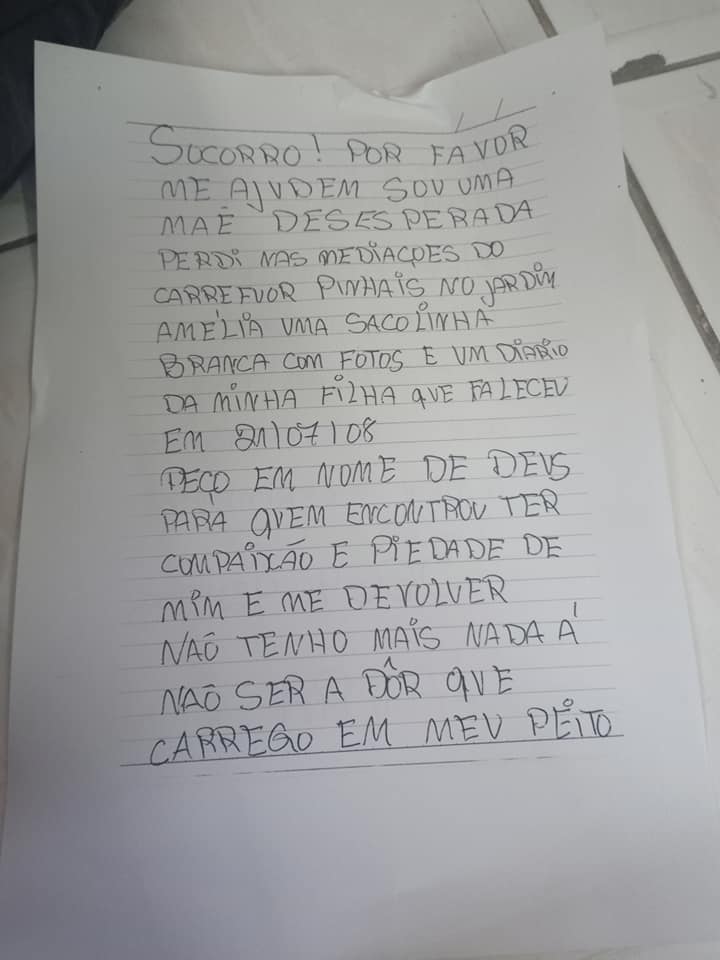 SOCORRO! POR FAVOR
ME AJUDEM SOU UMA
MAÊ DESESPERADA
PERDI NAS MEDIAÇOES DO
CARREFUOR PINHAIS NO JARDIM
AMÉLIA UMA SACOLINHA
BRANCA COM FOTOS E UM DIARIO
DA MINHA FILHA QUE FALECEU
EM 21/07/08
PEÇO EM NOME DE DEUS
PARA QUEM ENCONTROU TER
COMPAIXÃO E PIEDADE DE
MIM E ME DEVOLVER
NAÕ TENHO MAIS NADA Á
NAÕ SER A DÔR QUE
CARREGO EM MEU PEITO